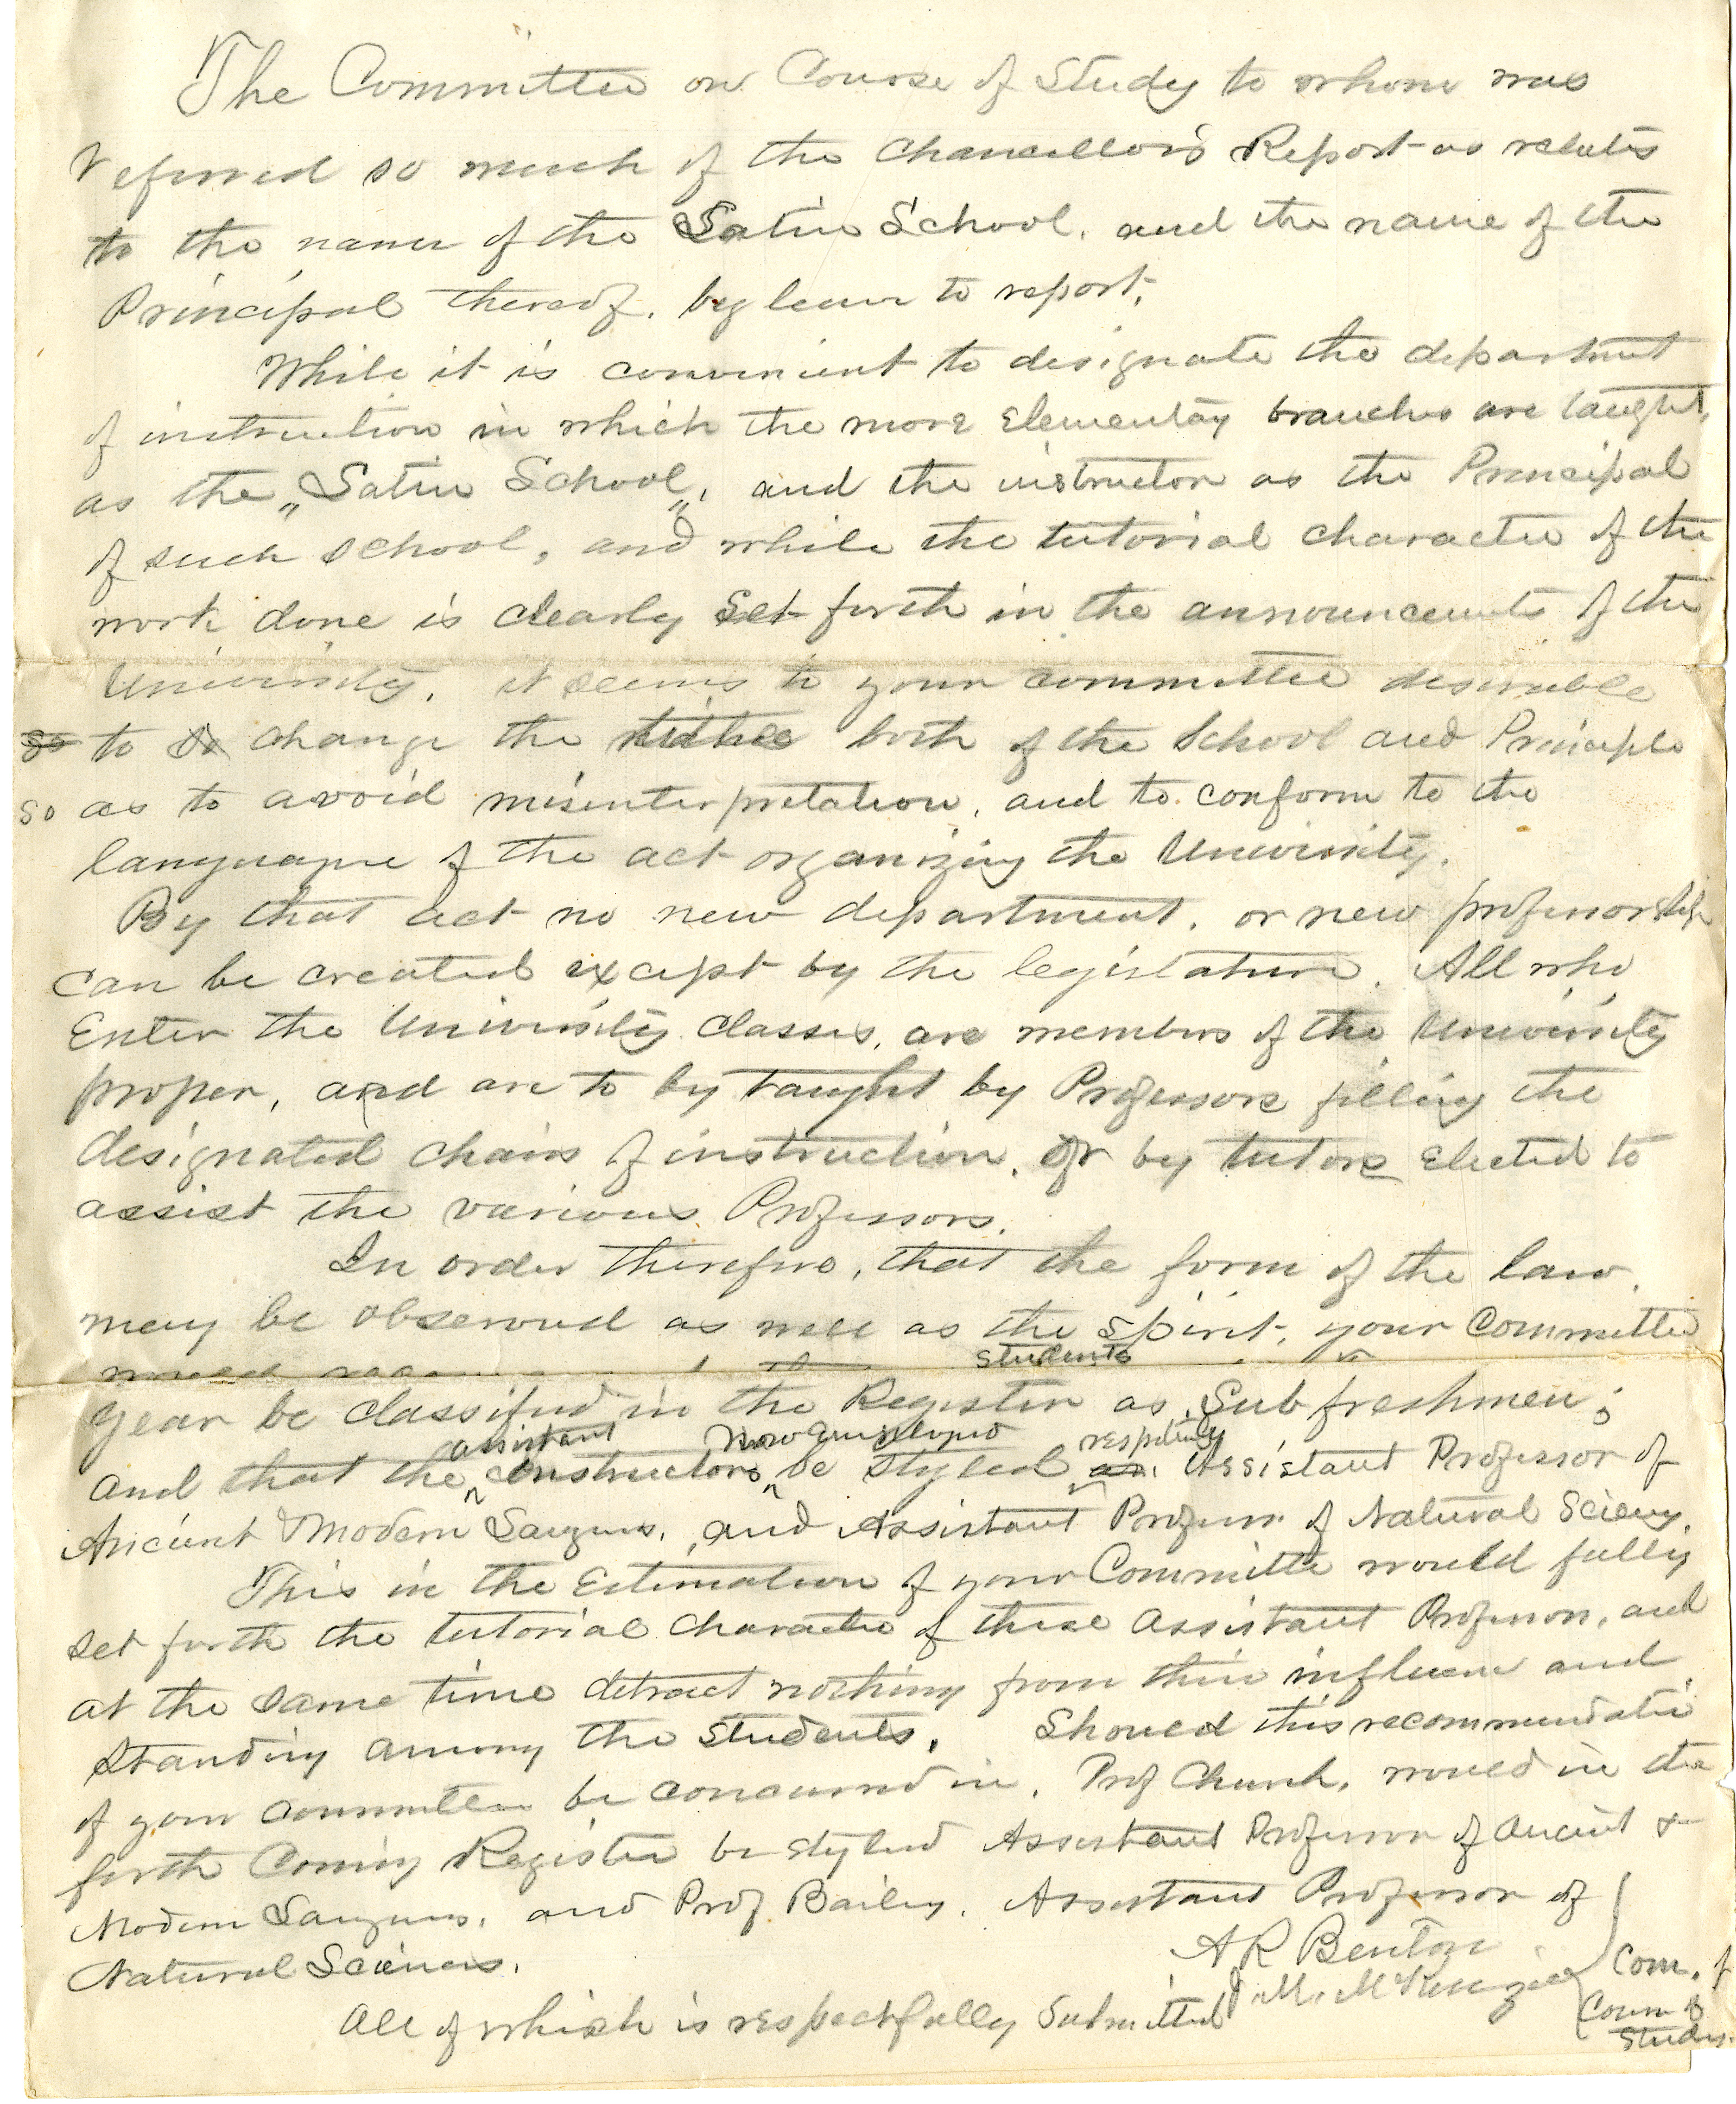 The Committee on Course of Study to whom was
referred so much of the Chancellor's Report as relates
to the name of the Latin School, and the name of the
Principal thereof, beg leave to report;
While it is convenient to designate the department
of instruction in which the more Elementary branches are taught,
as the „Latin School„, and the instructor as the Principal
of such school, and while the tutorial character of the
work done is clearly set forth in the announcements of the
University, it seems to your committee desirable
so to so change the titles both of the School and Principle
so as to avoid misinterpretation, and to conform to the
language of the act organizing the University.
By that act no new department, or new professorship
can be created except by the legislature. All who
Enter the University classes, are members of the University
proper, and are to by taught by Professors filling the
designated chairs of instruction, or by tutors elected to
assist the various Professors.
In order therefore, that the form of the law
may be observed as well as the spirit, your Committee
would
students
year be classified in the Register as Sub freshmen;
assistant now employed respectively
and that the instructors be styled as Assistant Professor of
Ancient & Modern Langues, and Assistant Professor of Natural Sciency.
This in the Estimation of your Committe would fully
set forth the tutorial character of these assistant Professors, and
at the same time detract nothing from their influence and
standing among the students. Should this recommendatio
of your committee be concurred in, Prof Church, would in the
forth coming Register be styled Assistant Professor of ancient &
Modern Langues, and Prof Bailey, Assistant Professor of
Natural Sciences.
All of which is respectfully submitted
A R Benton
J. M. McKenzie
Com. of
Course of
Study.